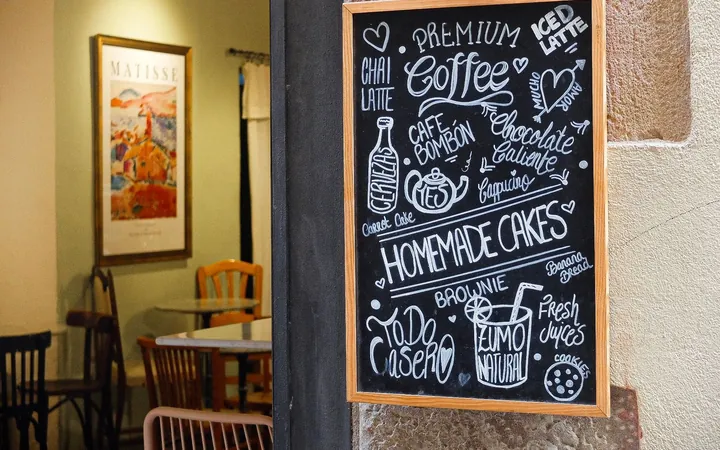 MATISSE
PREMIUM
Coffee
ICED
LATTE
CHAI
LATTE
MUCHO
AMOR
CAFE
BOMBÓN
Chocolate
Caliente
CERVEZAS
TES
Cappucino
Carrot Cake
HOMEMADE CAKES
Banana
Bread
BROWNIE
ToDo
CaserO
ZUMO
NATURAL
Fresh
Juices
COOKIES